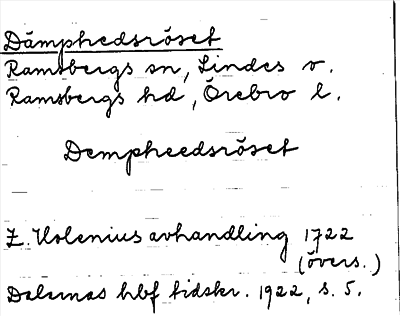 Dämphedsröset
Ramsbergs sn, Lindes o.
Ramsbergs hd, Örebro l.
Dempheedsröset
Z. Holenius avhandling 1722
(övers.)
Dalarnas hbf tidskr. 1922, s. 5.